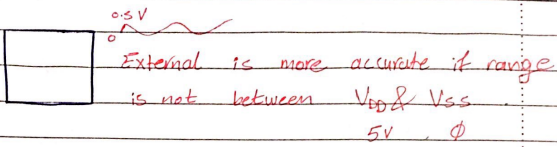 0.5 V
0
External is more accurate if range
is not between VDD & VSS .
5V , φ